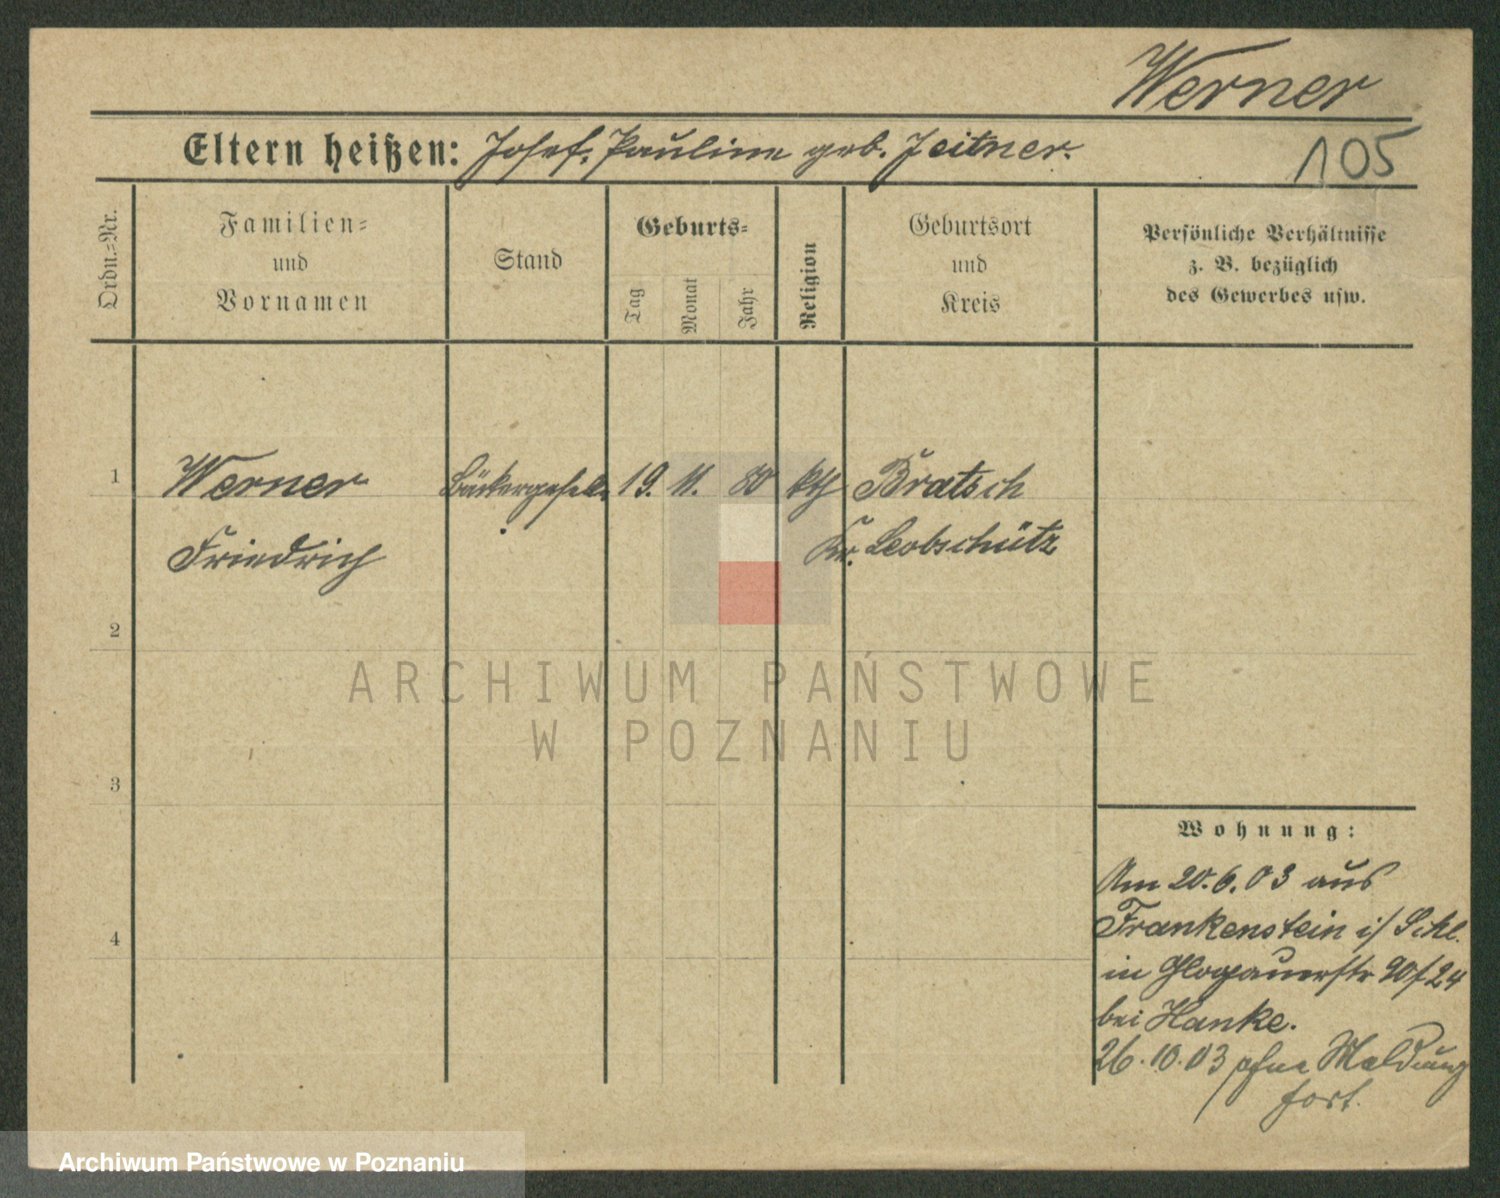 Werner
Eltern heißen: Josef, Pauline geb. Zeitner.
105
Ordn.-Nr.
Familien-
und
Vornamen
Stand
Geburts-
Tag
Monat
Jahr
Religion
Geburtsort
und
Kreis
Persönliche Verhältnisse
z. B. bezüglich
des Gewerbes usw.
1 Werner Bäckergeselle 19. 11. 80 kth Bratsch
Friedrich Kr. Leobschütz
2
ARCHIWUM PAŃSTWOWE
W POZNANIU
3
Wohnung:
Am 20.6.03 aus
Frankenstein i/ Schl.
4
in Glogauerstr 90/24
bei Hanke.
26.10.03 ohne Meldung
fort.
Archiwum Państwowe w Poznaniu